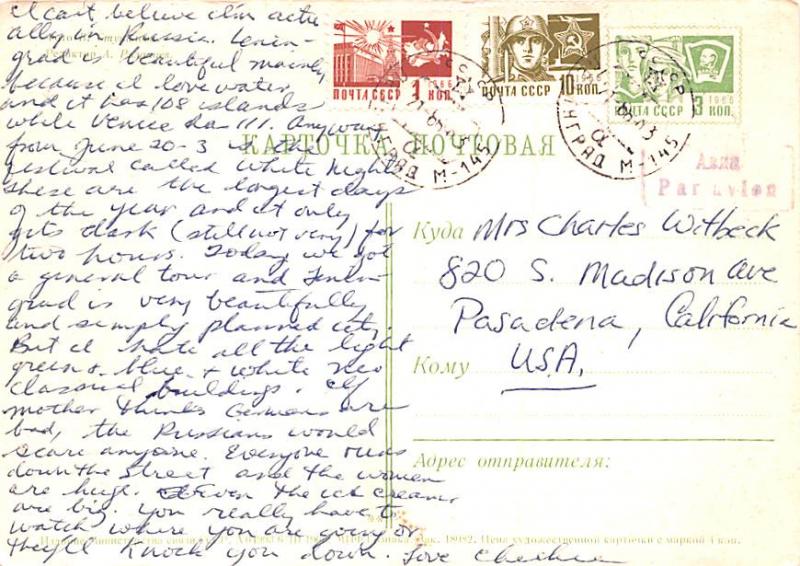 I cait believe I'm actu-
ally in Russia. Lenin-
grad is beautiful mainly
because I love water
and it has 108 islands
while Venice has 111. Anyway
from June 20-3 is the
festival called White Nights
these are the longest days
of the year and it only
gets dark (still not very) for
two hours. Today we got
a general tour and Lenin-
grad is very beautifully
and simply planned city.
But I hate all the light
green, blue, + white neo
classical buildings. If
mother thinks Germans are
bad, the Russians would
scare anyone. Everyone runs
down the street and the women
are huge. Even the ice creams
are big. You really have to
watch where you are going or
they'll knock you down. Love
ПОЧТА СССР 1 КОП. 1966
ПОЧТА СССР 10 КОП. 1966
ПОЧТА СССР 3 КОП. 1966
М-145
М-145
КАРТОЧКА ПОЧТОВАЯ
Авиа
Par avion
Куда Mrs Charles Witbeck
820 S. Madison Ave
Pasadena, California
Кому U.S.A.
Адрес отправителя:
Цена художественной карточки с маркой 4 коп.